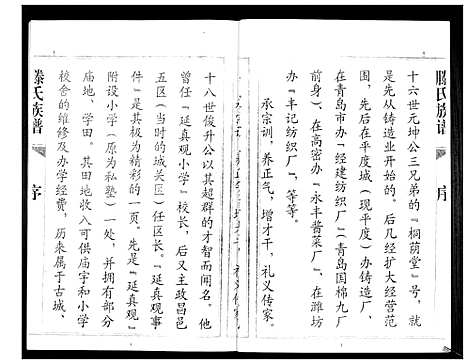 滕氏族谱
序
十六世元坤公三兄弟的“桐荫堂”号，就
是先从铸造业开始的。后几经扩大经营范
围，先后在平度城（现平度）办铸造厂，
在青岛市办“经建纺织厂”（青岛国棉九厂
前身）、在高密办“永丰酱菜厂”、在潍坊
办“丰记纺织厂”，等等。
承宗训，养正气，增才干，礼义传家。
十八世俊升公以其超群的才智而闻名。他
曾任“延真观小学”校长，后又主政昌邑
五区（当时的城关区）任区长。“延真观事
件”是其极为精彩的一页。先是“延真观”
附设小学（原为私塾）一处，并拥有部分
庙地、学田。其田地收入可供庙宇和小学
校舍的维修及办学经费，历来属于古城、
滕氏族谱
序